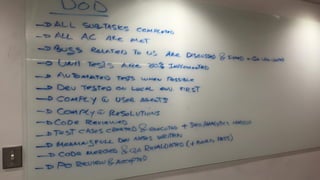 DOD
→ ALL SUBTASKS COMPLETED
→ ALL AC ARE MET
→ BUGS RELATED TO US ARE DISCUSSED & FIXED
→ UNIT TESTS ARE 80% IMPLEMENTED
→ AUTOMATED TESTS WHEN POSSIBLE
→ DEV TESTED ON LOCAL ENV FIRST
→ COMPLY @ USER AGENTS
→ COMPLY @ RESOLUTIONS
→ CODE REVIEWED
→ TEST CASES CREATED & EXECUTED +
→ MEANINGFUL DEV NOTES WRITTEN
→ CODE MERGED & QA REVALIDATED (+ PASS)
→ PO REVIEW & ACCEPTED